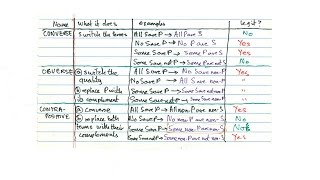 Name what it does examples legit?
CONVERSE switch the terms All S are P → All P are S No
No S are P → No P are S Yes
Some S are P → Some P are S Yes
Some S are not P → Some P are not S No
OBVERSE ① switch the All S are P → No S are non-P Yes
quality No S are P → All S are non-P "
② replace P with Some S are P → Some S are not non-P "
its complement Some S are not P → Some S are non-P "
CONTRA- ① converse All S are P → All non-P are non-S Yes
POSITIVE ② replace both No S are P → No non-P are non-S No
terms with their Some S are P → Some non-P are non-S No
complements Some S are not P → Some non-P are not non-S Yes